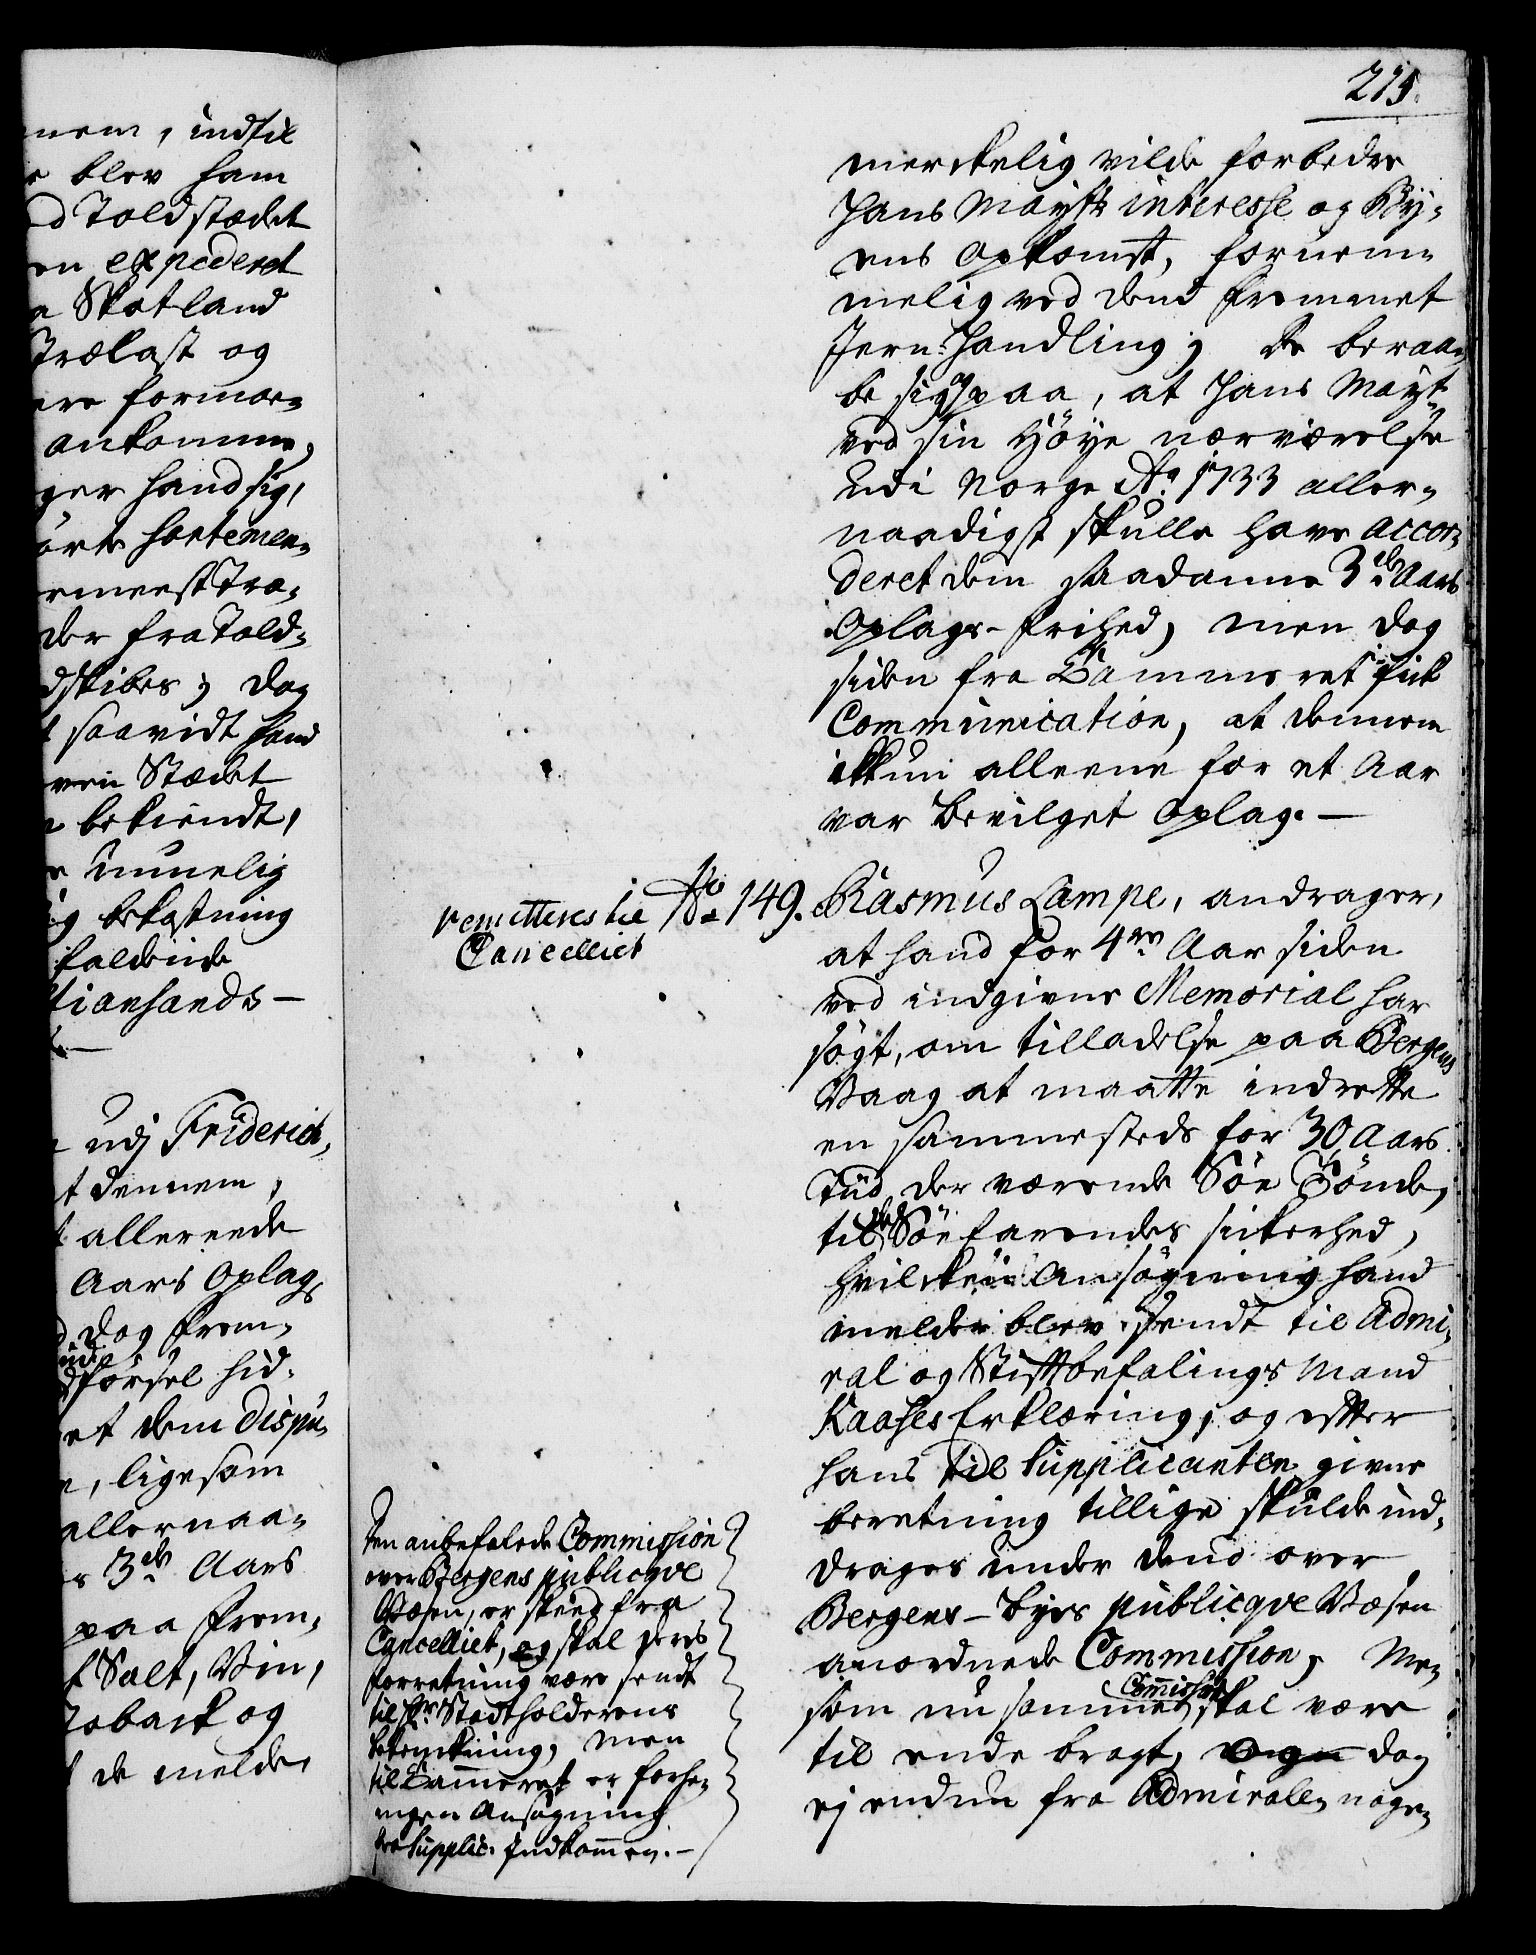 nem, indtil
blev ham
Toldstædet
en expederet
Skotland
Trælast og
ere formoe=
ankomme,
ger hand sig,
ørte
der fra Told=
dskibes; dog
saavidt hand
Stædet
bekiendt,
umuelig
bekostning
faldende
tiansands —
udj Friderich=
t dennem,
allereede
Aars Oplag
dog frem=
førsel hid=
et dem dispu=
, ligesom
allernaa=
3de Aars
paa frem=
f Salt, Viin,
Toback og
de melder
215.
merckelig vilde forbedre
Hans Mayts interesse og By=
ens Opkomst, fornem=
melig ved dend fremmet
Jern-Handling; de beraa=
be sig og paa, at Hans Mayt
ved sin Høye nærværelse
udi Norge Ao 1733 aller=
naadigst skulle have accor=
deret dem saadanne 3de Aars
Oplags-frihed, men dog
siden fra Cammeret fick
Communication, at dennem
ikkun alleene for et Aar
var bevilget Oplag. —
remitteres til
Cancelliet
No 149. Rasmus Lampe, andrager,
at hand for 4re Aar siden
ved indgivne Memorial har
søgt, om tilladelse paa Bergens
Vaag at maatte indrette
en sammesteds for 30 Aars
Tiid der værende Søe Tønde,
til de Søefarendes sikerhed,
hvilcken Ansøgning hand
melder blev sendt til Admi=
ral og Stiftbefalings Mand
Kaases Erklæring, og efter
hans til Supplicanten givne
beretning tillige skulde ind=
drages under dend over
Bergens-Byes publicqve Væsen
anordnede Commission, Me=
som nu samme Commission skal være
til ende bragt, dog
ej endnu fra Admiralen noge=
Den anbefalede Commission
over Bergens publicqve
Væsen, er skeed fra
Cancelliet, og skal deres
forretning være sendt
til Hr Statholderens
betenckning, men
til Cammeret er forhe=
ingen Ansøgning
fra Supplic. Indkommen. —